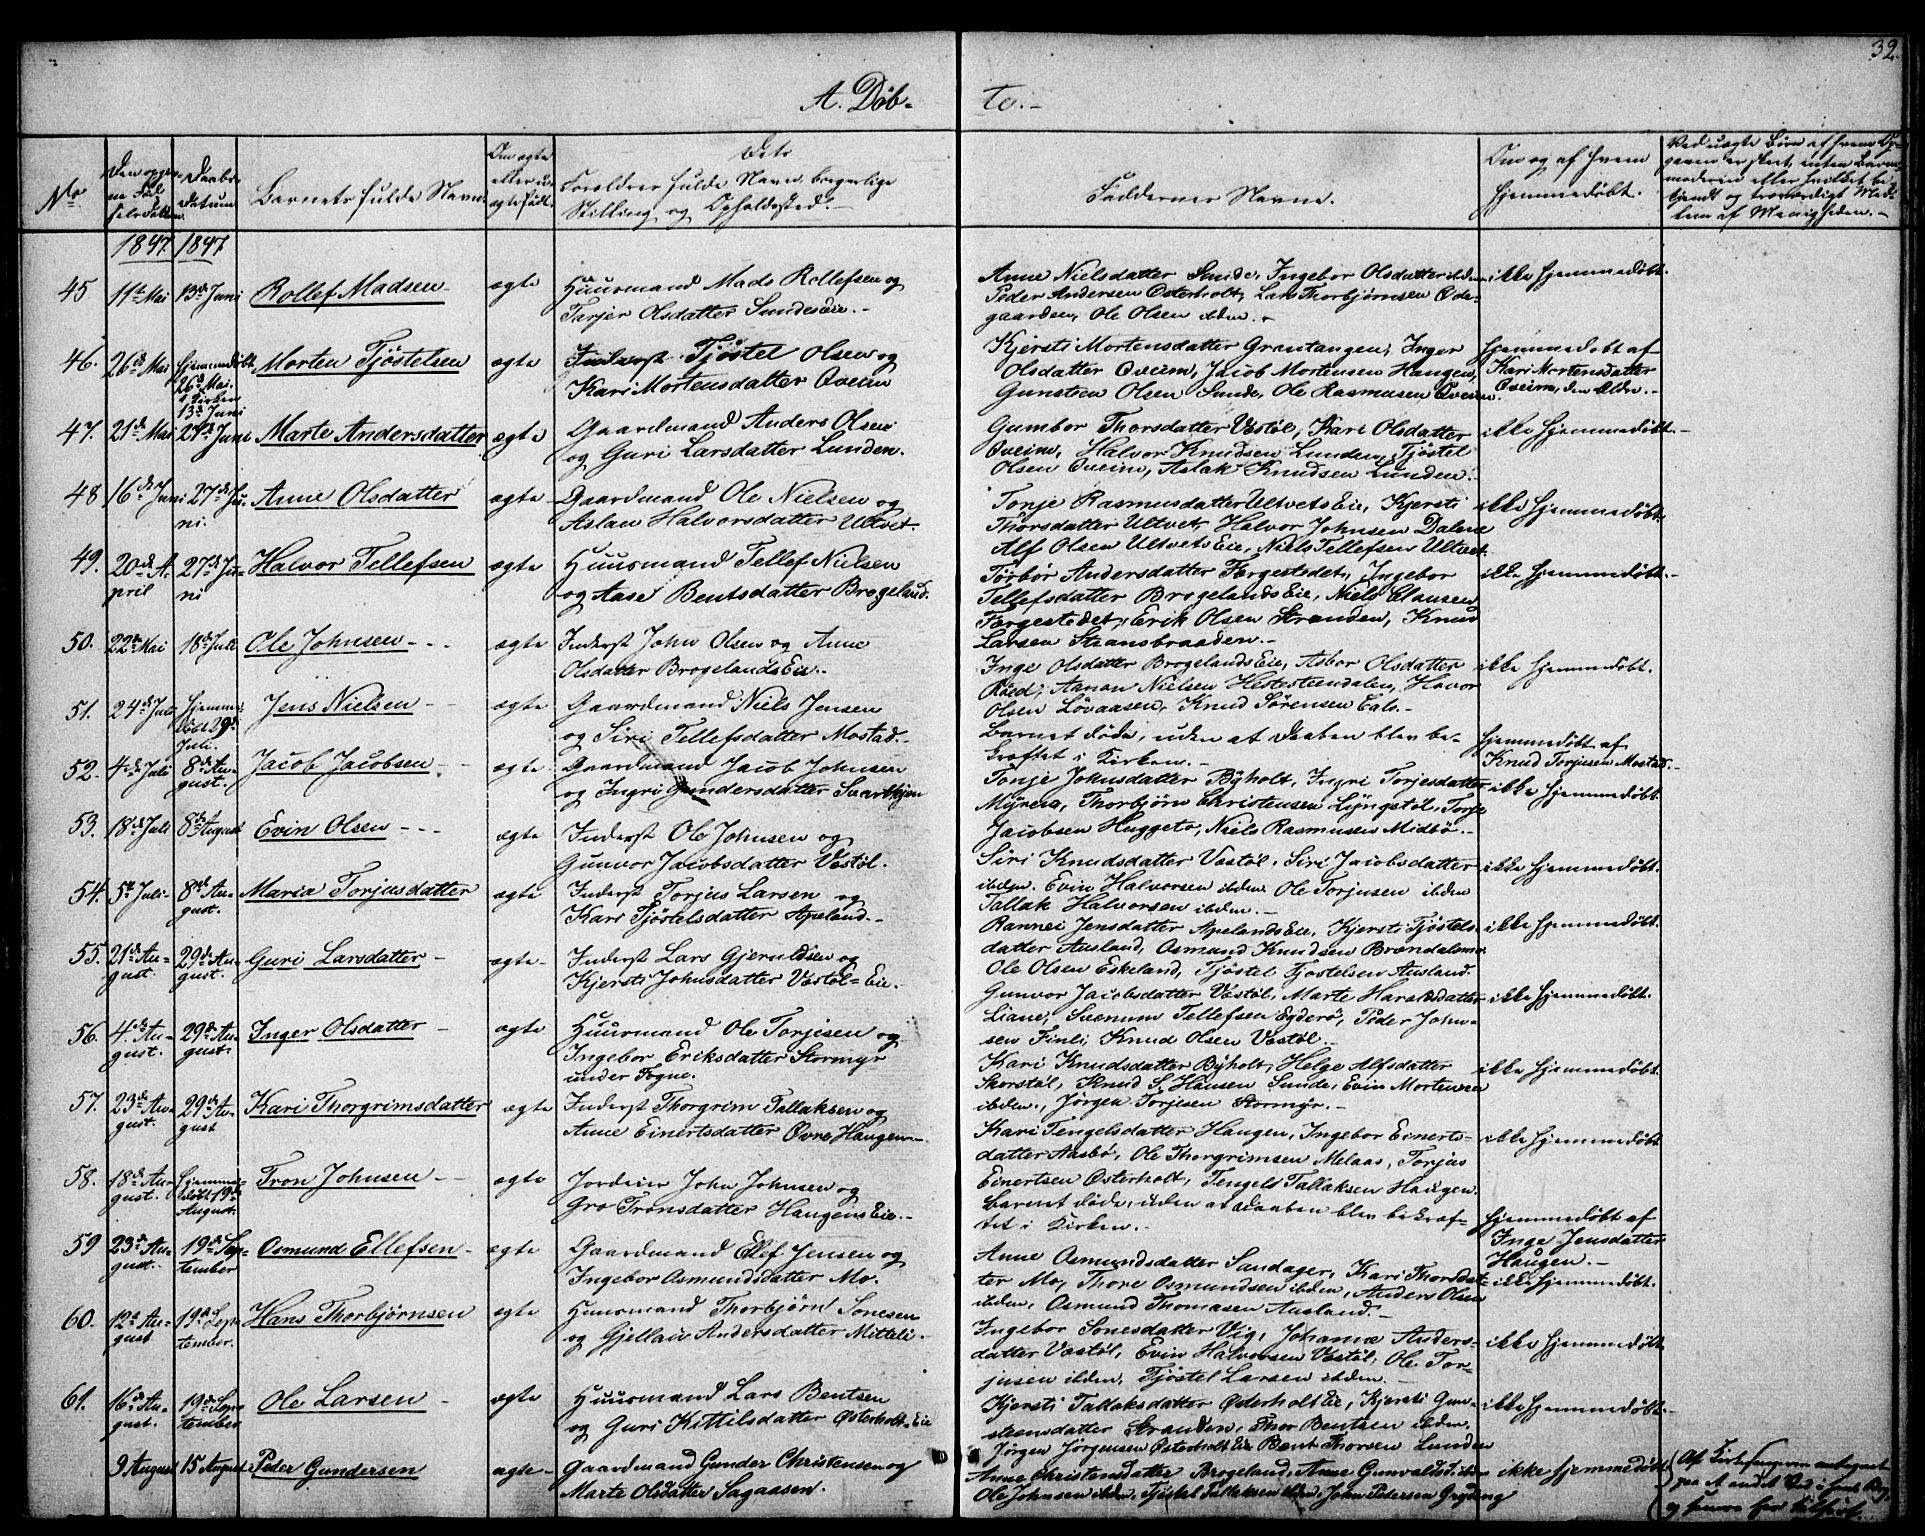 32.
A. Døb-
te.-
No
Den opgivne Fødselsdatum.
Daabsdatum
Barnets fulde Navn.
Om ægte eller uægte født.
Dets
Forældres fulde Navn, borgerlige
Stilling og Opholdssted.-
Faddernes Navne.
Om og af hvem
hjemmedøbt.
Ved uægte Børn af hvem Opgaven er skeet, enten Barnemoderen eller hvilket bekjendt og troværdigt Medlem af Menigheden.-
1847. 1847
45 11te Mai 13de Juni Rollef Madsen ægte Huusmand Mads Rollefsen og
Tarjer Olsdatter Sundes Eie.-
Anne Nielsdatter Sunde, Ingebor Olsdatter ibdm
Peder Andersen Østerholt, Lars Thorbjørnsen Ødegaarden, Ole Olsen ibdm.
ikke hjemmedøbt.
46. 26de Mai Hjemmedøbt 26de Mai. i Kirken 13de Juni Morten Tjøstelsen ægte Inderst Tjøstel Olsen og
Kari Mortensdatter Øveim
Kjersti Mortensdatter Grautangen, Inger
Olsdatter Øveim, Jacob Mortensen Haugen,
Gunsteen Olsen Sunde, Ole Rasmusen Øveim.
hjemmedøbt af
Kari Mortensdatter
Øveim, den Ældre.-
47. 21de Mai 27de Juni Marte Andersdatter ægte Gaardmand Anders Olsen
og Guri Larsdatter Lunden.
Gumbor Thorsdatter Vestøl, Kari Olsdatter
Øveim, Halvor Knudsen Lunden, Tjøstel
Olsen Øveim, Aslak Knudsen Lunden.
ikke hjemmedøbt.-
48 16de Juni 27de Juni. Anne Olsdatter ægte Gaardmand Ole Nielsen og
Aslau Halvorsdatter Ultvet.
Tonje Rasmusdatter Ultvets Eie, Kjersti
Thorsdatter Ultvet, Halvor Johnsen Dalene
Alf Olsen Ultvets Eie, Niels Tellefsen Ultvet.
ikke hjemmedøbt.
49. 20de April 27de Juni Halvor Tellefsen ægte Huusmand Tellef Nielsen
og Aase Bentsdatter Brogeland.
Torbør Andersdatter Fergestedet, Ingebor
Tellefsdatter Brogelands Eie, Niels Clausen
Fergestedet, Erik Olsen Stranden, Knud
Larsen Stransbraaden.-
ikke hjemmedøbt.-
50. 22de Mai 18de Juli Ole Johnsen ægte Inderst John Olsen og Anne
Olsdatter Brogelands Eie.
Inge Olsdatter Brogelands Eie, Asbor Olsdatter
Røed, Aanon Nielsen Hestesteendalen, Havor
Olsen Løvaasen, Knud Sørensen Eals.-
ikke hjemmedøbt.
51. 24de Juli Hjemmedøbt 29de Juli. Jens Nielsen ægte Gaardmand Niels Jensen
og Siri Tellefsdatter Mostad.
Barnet døde, uden at Daaben blev bekræftet i Kirken.-
hjemmedøbt af
Knud Torjusen Mostad.-
52. 4de Juli 8de August. Jacob Jacobsen ægte Gaardmand Jacob Johnsen
og Ingri Gundersdatter Svartkjøn
Tonje Johnsdatter Byholt, Ingri Torjesdatter
Myrern, Thorbjørn Christensen Lyngstøl, Torje
Jacobsen Huggeto, Niels Rasmusen Midbø.-
ikke hjemmedøbt.
53. 18de Juli 8de August Evin Olsen ægte Inderst Ole Johnsen og
Gunvor Jacobsdatter Vestøl.
Siri Knudsdatter Vestøl, Siri Jacobsdatter
ibdm. Evin Halvorsen ibdm. Ole Torjusen ibdm
Tallak Halvorsen ibdm.-
ikke hjemmedøbt.
54. 5te Juli 8de August. Maria Torjusdatter ægte Inderst Torjus Larsen og
Kari Tjøstelsdatter Apeland.
Rannei Jensdatter Apelands Eie, Kjersti Tjøstelsdatter Ausland, Osmund Knudsen Brændalsmo
Ole Olsen Eskeland, Tjøstel Tjøstelsen Ausland.
ikke hjemmedøbt.
55. 21de August. 29de August. Guri Larsdatter ægte Inderst Lars Gjeruldsen og
Kjersti Johnsdatter Vestøl-Eie.
Gunvor Jacobsdatter Vestøl, Marte Haraldsdatter
Liane, Tellefsen Egderø, Peder Johnsen Finli, Knud Olsen Vestøl.
ikke hjemmedøbt.
56. 4de August. 29de August. Inger Olsdatter ægte Huusmand Ole Torjesen og
Ingebor Eriksdatter Stormyr
under Fogne.
Kari Knudsdatter Byholt, Helge Alfsdatter
Skorstøl, Knud S. Hansen Sunde, Evin Mortensen
ibdem., Jørgen Torjesen Stormyr.-
ikke hjemmedøbt.
57. 23de August. 29de August Kari Thorgrimsdatter ægte Inderst Thorgrim Tallaksen og
Anne Einertsdatter Øvre Haugen.
Kari Tengelsdatter Haugen, Ingebor Einertsdatter Aasbø, Ole Thorgrimsen Melaas, Torjus
Einertsen Østerholt, Tengels Tallaksen Haugen.
ikke hjemmedøbt
58. 18de August. Hjemmedøbt 19de August. Tron Johnsen ægte Jordeier John Johnsen og
Gro Tronsdatter Haugens Eie.-
Barnet døde, uden at daaben blev bekræftet i Kirken.-
hjemmedøbt af
Inge Jensdatter
Haugen.-
59 23de August. 19de September Osmund Ellefsen ægte Gaardmand Ellef Jensen og
Ingebor Osmundsdatter Mo.
Anne Osmundsdatter Sandager, Kari Thorsdatter Mo, Thore Osmundsen ibdem, Anders Olsen
ibdem, Osmund Thomasen Ausland.-
ikke hjemmedøbt.
60. 12te August 19de September. Hans Thorbjørnsen ægte Huusmand Thorbjørn Sonesen
og Gjellau Andersdatter Mitteli.
Ingebor Sonesdatter Vig, Johanne Andersdatter Vestøl, Evin Halvorsen Vestøl, Ole Torjusen ibdem, Tjøstel Larsen ibdem.
ikke hjemmedøbt
61. 16de August. 19de September Ole Larsen ægte Huusmand Lars Bentsen
og Guri Kittilsdatter Østerholt-Eie
Kjersti Tallaksdatter Østerholt Eie, Kjersti Gunsteensdatter Stranden, Thor Bentsen ibdem,
Jørgen Jørgensen Østerholt Eie Bent Thorsen Lunden
ikke hjemmedøbt.
9 August 15 August Peder Gundersen ægte Gaardmand Gunder Christensen og
Marte Olsdatter Sagaasen.
Anne Christensdatter Brogeland, Anne Gunvaldsd. ibdm
Ole Johnsen ibdm. Tjøstel Tallaksen ibdm, John Petersen Gryting
ikke hjemmedøbt
Af Kirkesangeren antegnet
paa et andet Sted i hans Bog,
og